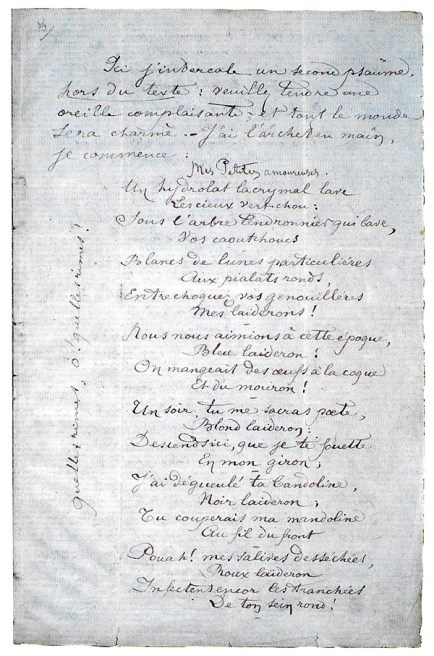 Ici j'intercale un second psaume,
hors du texte : veuillez tendre une
oreille complaisante, et tout le monde
sera charmé. — J'ai l'archet en main,
je commence :
Mes Petites amoureuses.
Un hydrolat lacrymal lave
Les cieux vert-chou :
Sous l'arbre tendronnier qui bave,
Vos caoutchoucs
Blancs de lunes particulières
Aux pialats ronds,
Entrechoquez vos genouillères
Mes laiderons !
Nous nous aimions à cette époque,
Bleu laideron !
On mangeait des œufs à la coque
Et du mouron !
Un soir, tu me sacras poète,
Blond laideron :
Descends ici, que je te fouette
En mon giron ;
J'ai dégueulé ta bandoline,
Noir laideron ;
Tu couperais ma mandoline
Au fil du front
Pouah ! mes salives desséchées,
Roux laideron
Infectent encor les tranchées
De ton sein rond !
Quelles rimes, ô ! quelles rimes !